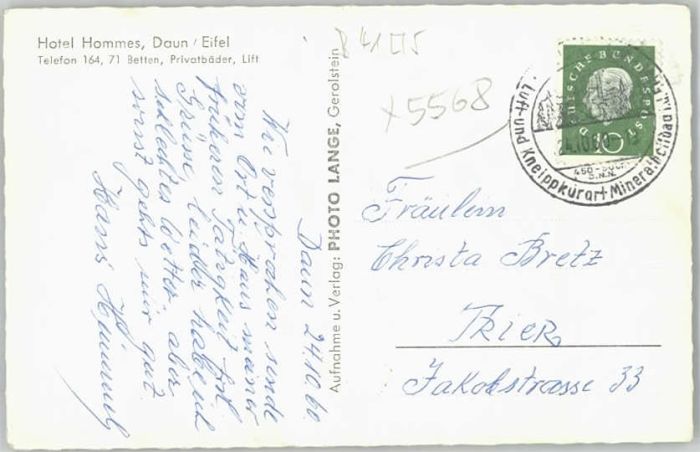 Hotel Hommes, Daun / Eifel
Telefon 164, 71 Betten, Privatbäder, Lift
Daun 24.10.60.
Wie versprochen sende
vom Ort u. Haus meiner
früheren Tätigkeit frl.
Grüsse, leider habe ich
schlechtes Wetter aber
sonst gehts mir gut
Hans Himmel
Aufnahme u. Verlag: PHOTO LANGE, Gerolstein
x5568
DEUTSCHE BUNDESPOST
10
24.10.60
450-500
ü.N.N.
Luft- und Kneippkurort Mineralheilbad
Fräulein
Christa Bretz
Trier
Jakobstrasse 33